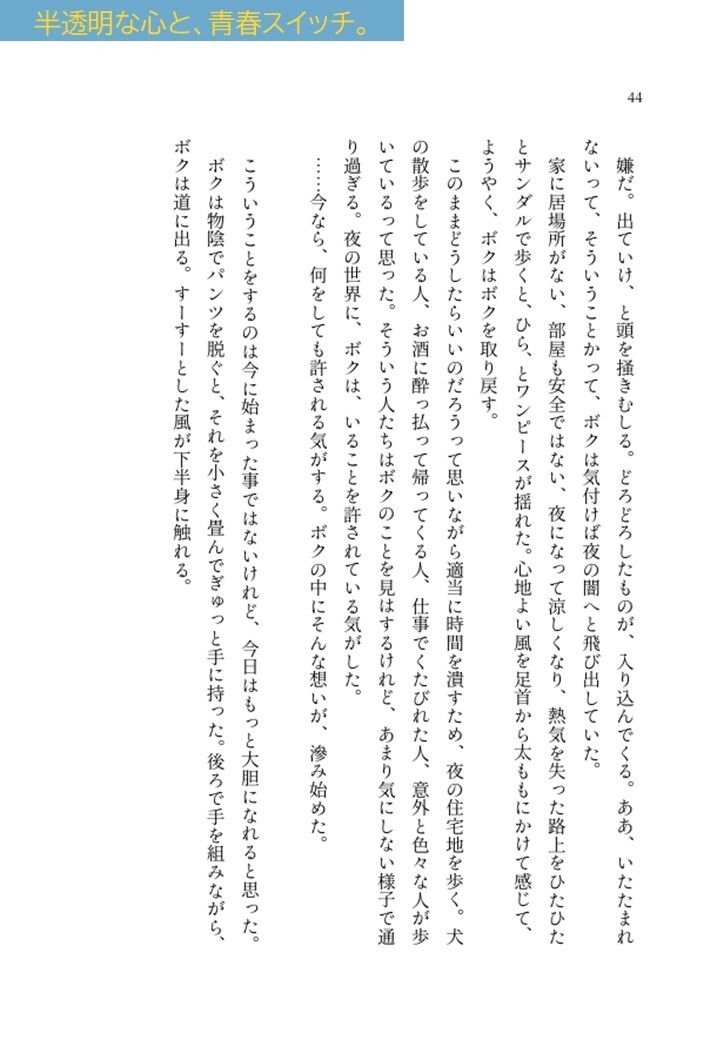 半透明な心と、青春スイッチ。
44
嫌だ。出ていけ、と頭を掻きむしる。どろどろしたものが、入り込んでくる。ああ、いたたまれ
ないって、そういうことかって、ボクは気付けば夜の闇へと飛び出していた。
家に居場所がない、部屋も安全ではない、夜になって涼しくなり、熱気を失った路上をひたひた
とサンダルで歩くと、ひら、とワンピースが揺れた。心地よい風を足首から太ももにかけて感じて、
ようやく、ボクはボクを取り戻す。
このままどうしたらいいのだろうって思いながら適当に時間を潰すため、夜の住宅地を歩く。犬
の散歩をしている人、お酒に酔っ払って帰ってくる人、仕事でくたびれた人、意外と色々な人が歩
いているって思った。そういう人たちはボクのことを見はするけれど、あまり気にしない様子で通
り過ぎる。夜の世界に、ボクは、いることを許されている気がした。
……今なら、何をしても許される気がする。ボクの中にそんな想いが、滲み始めた。
こういうことをするのは今に始まった事ではないけれど、今日はもっと大胆になれると思った。
ボクは物陰でパンツを脱ぐと、それを小さく畳んでぎゅっと手に持った。後ろで手を組みながら、
ボクは道に出る。すーすーとした風が下半身に触れる。